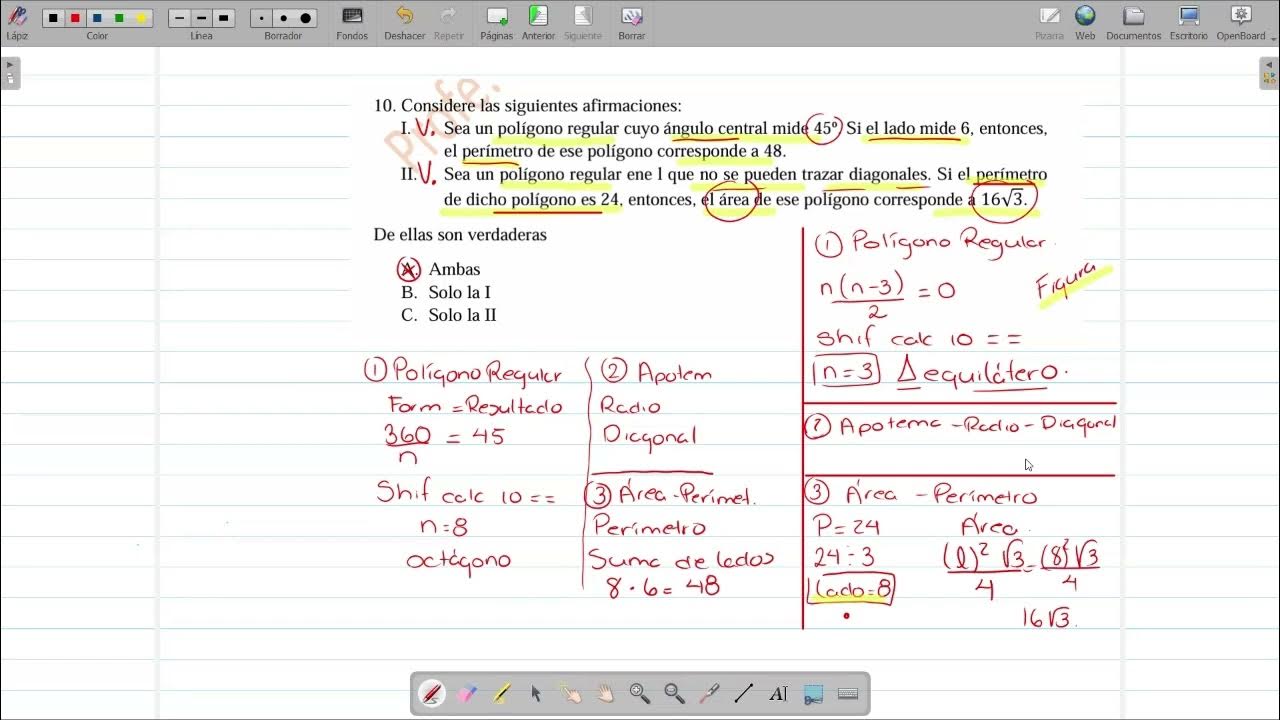 Lápiz Color Línea Borrador Fondos Deshacer Repetir Páginas Anterior Siguiente Borrar Pizarra Web Documentos Escritorio OpenBoard
10. Considere las siguientes afirmaciones:
I. V. Sea un polígono regular cuyo ángulo central mide 45° Si el lado mide 6, entonces,
el perímetro de ese polígono corresponde a 48.
II. V. Sea un polígono regular ene l que no se pueden trazar diagonales. Si el perímetro
de dicho polígono es 24, entonces, el área de ese polígono corresponde a 16√3.
De ellas son verdaderas
A. Ambas
B. Solo la I
C. Solo la II
① Polígono Regular
Form = Resultado
360/n = 45
Shif calc 10 ==
n=8
octágono
② Apotem
Radio
Diagonal
③ Área-Perímet.
Perímetro
Suma de lados
8 · 6 = 48
① Polígono Regular.
n(n-3)/2 = 0
Figura
Shif calc 10 ==
n=3 Δ equilátero.
② Apotema - Radio - Diagonal
③ Área - Perímetro
P=24 Área.
24÷3 (l)²√3/4 = (8)²√3/4
lado=8
16√3.